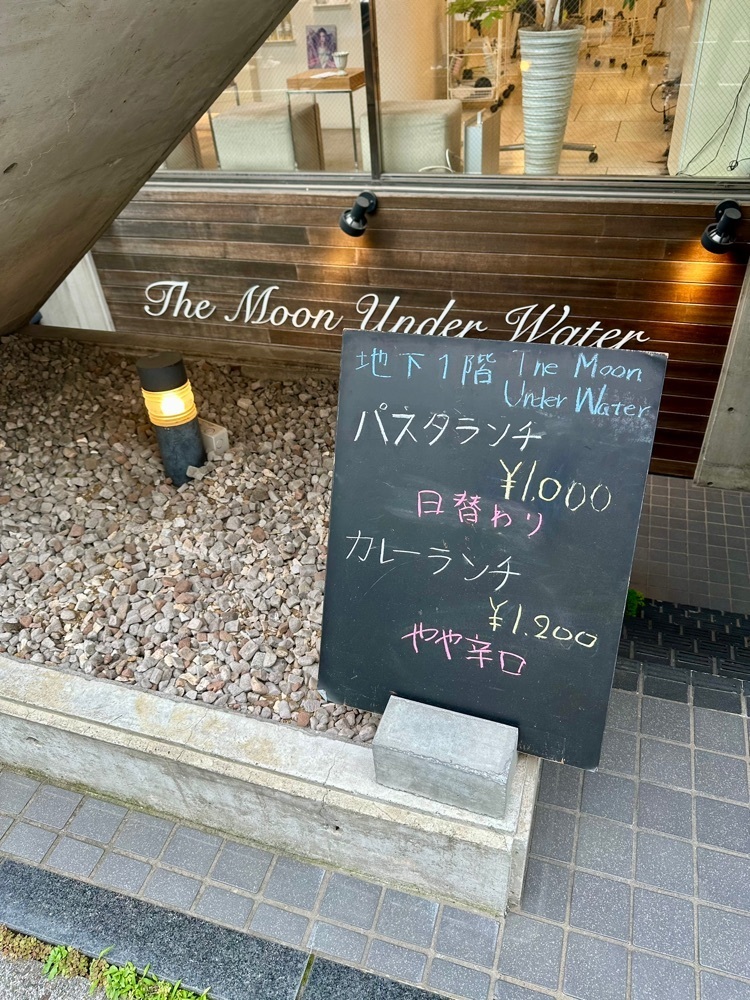 The Moon Under Water
地下1階 The Moon
Under Water
パスタランチ
¥1,000
日替わり
カレーランチ
¥1.200
やや辛口